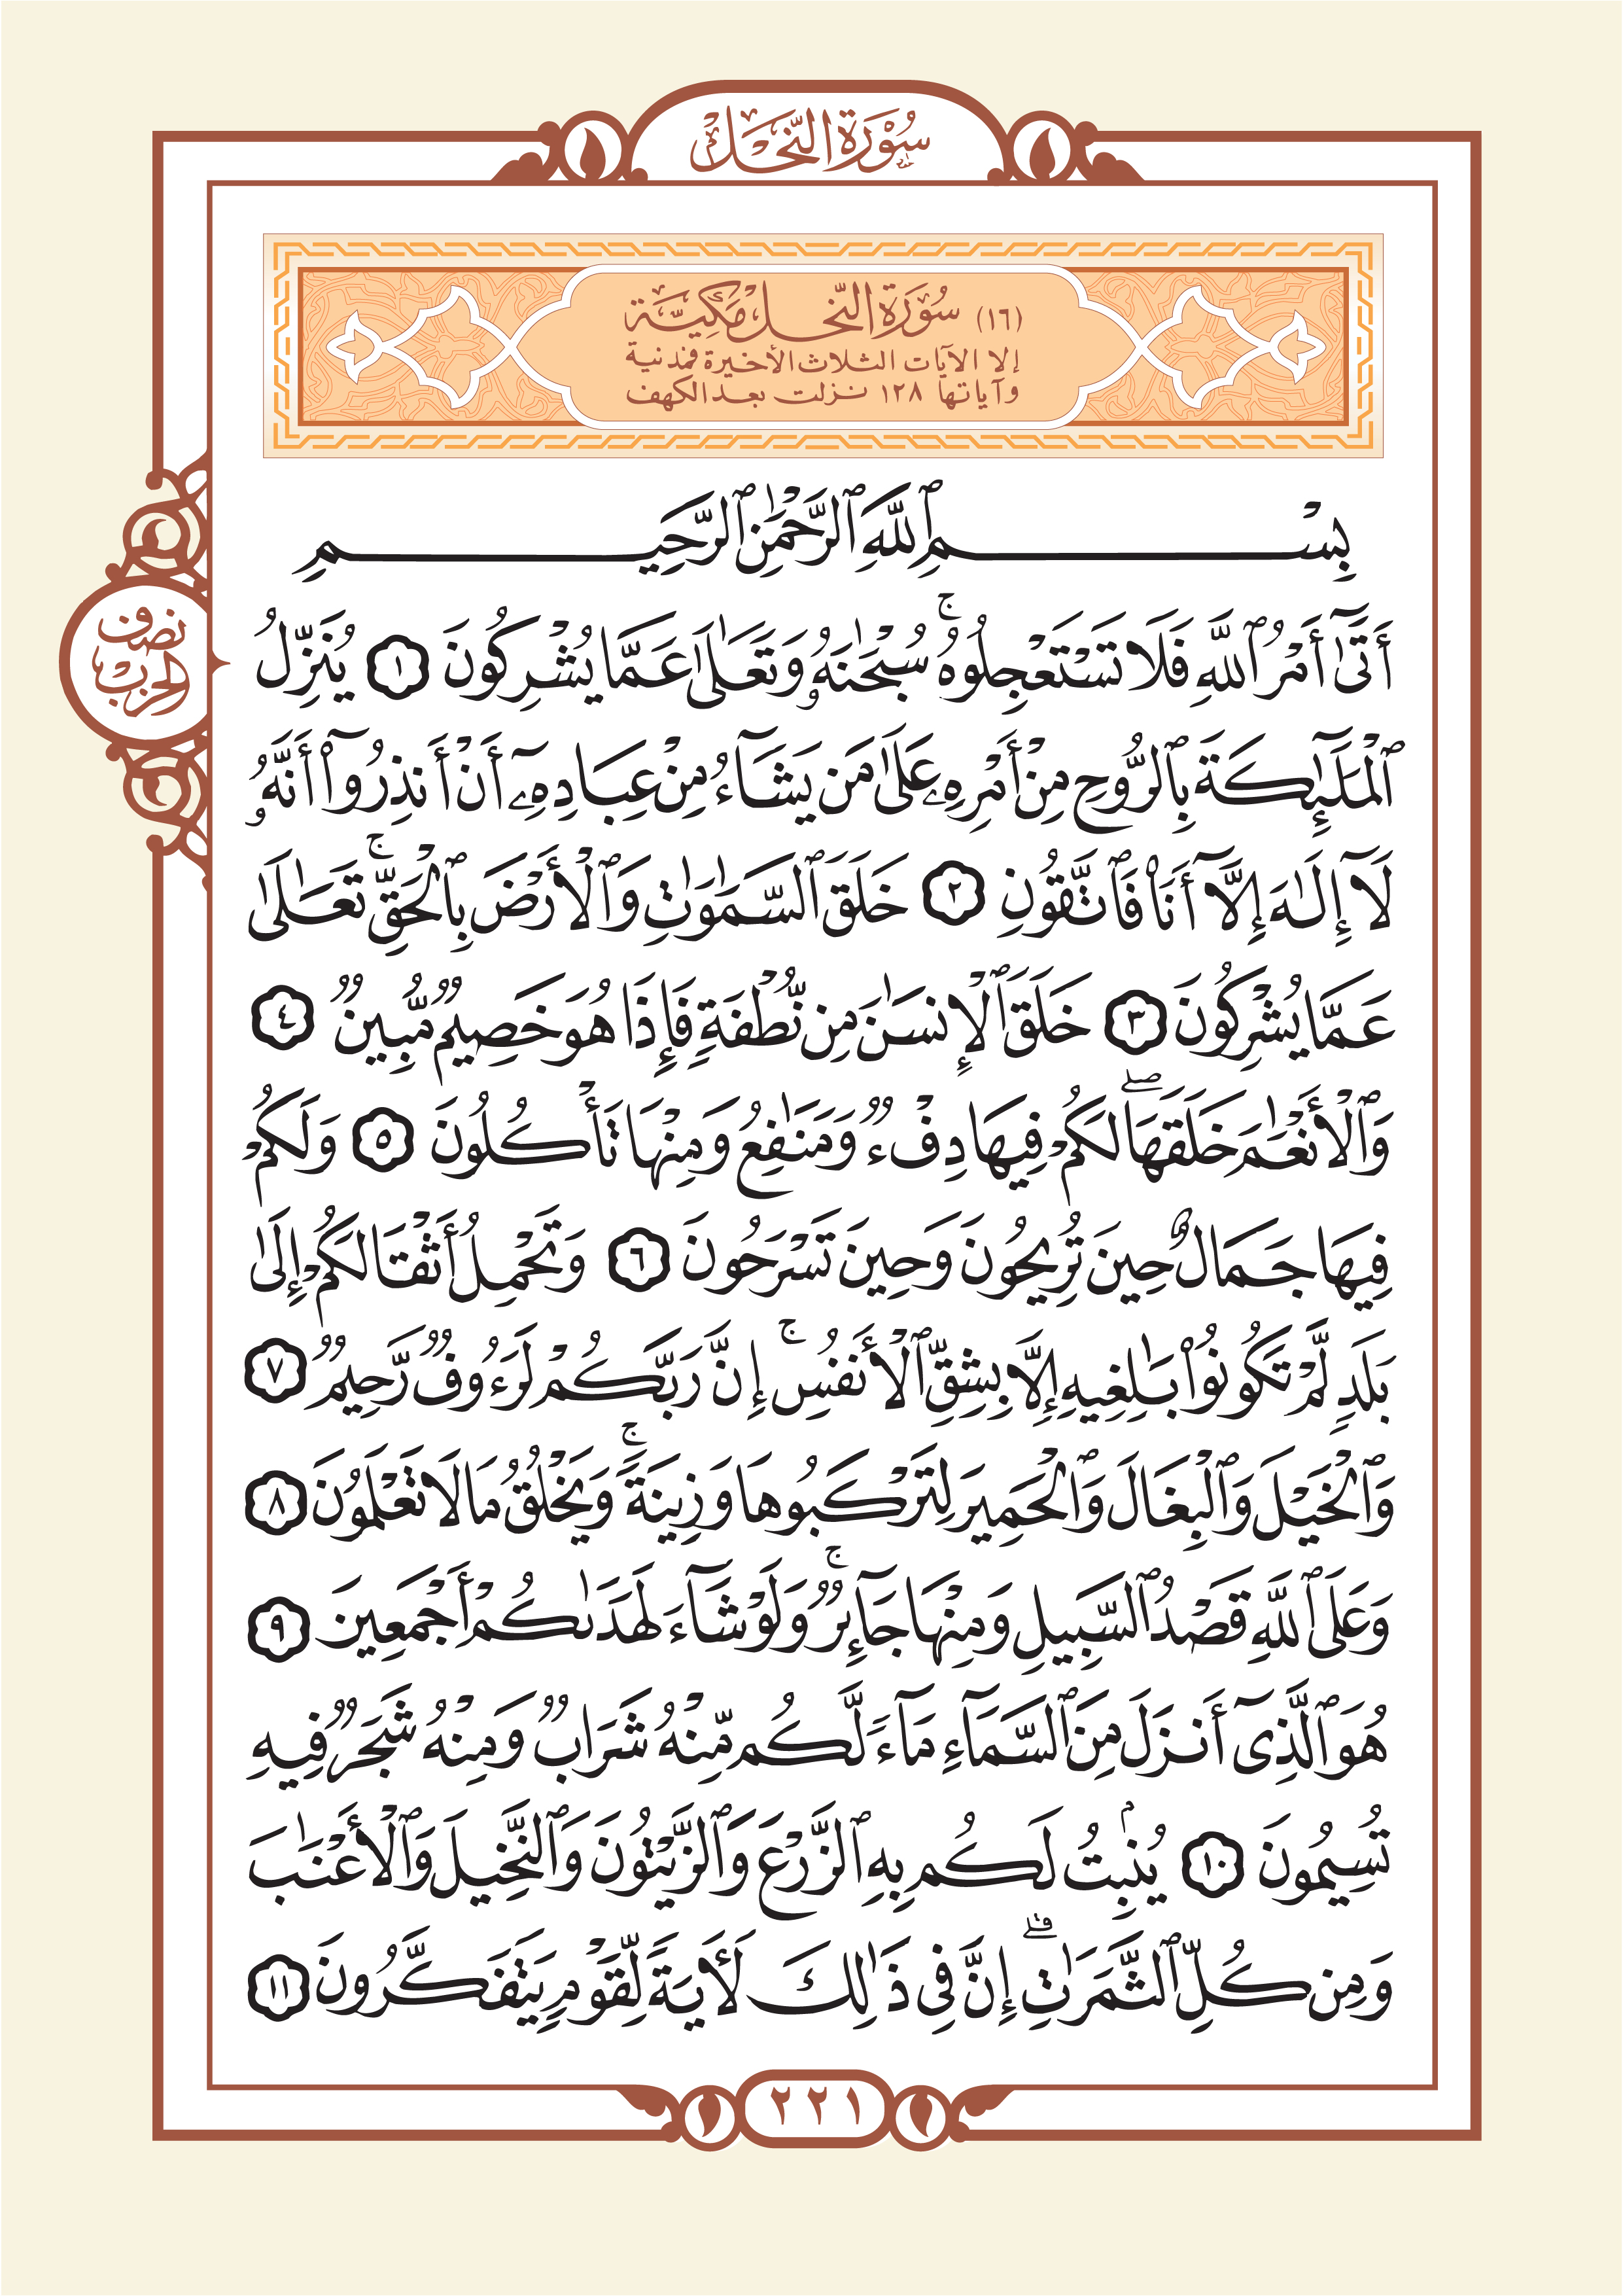 سُورَةُ النَّحْل
(١٦) سُورَةُ النَّحل مَكِّيَّة
إلا الآيات الثلاث الأخيرة فمدنية
وآياتها ١٢٨ نزلت بعد الكهف
بِسْمِ ٱللَّهِ ٱلرَّحْمَٰنِ ٱلرَّحِيمِ
أَتَىٰٓ أَمْرُ ٱللَّهِ فَلَا تَسْتَعْجِلُوهُ ۚ سُبْحَٰنَهُۥ وَتَعَٰلَىٰ عَمَّا يُشْرِكُونَ ١ يُنَزِّلُ
نصف
الحزب
ٱلْمَلَٰٓئِكَةَ بِٱلرُّوحِ مِنْ أَمْرِهِۦ عَلَىٰ مَن يَشَآءُ مِنْ عِبَادِهِۦٓ أَنْ أَنذِرُوٓا۟ أَنَّهُۥ
لَآ إِلَٰهَ إِلَّآ أَنَا۠ فَٱتَّقُونِ ٢ خَلَقَ ٱلسَّمَٰوَٰتِ وَٱلْأَرْضَ بِٱلْحَقِّ ۚ تَعَٰلَىٰ
عَمَّا يُشْرِكُونَ ٣ خَلَقَ ٱلْإِنسَٰنَ مِن نُّطْفَةٍ فَإِذَا هُوَ خَصِيمٌ مُّبِينٌ ٤
وَٱلْأَنْعَٰمَ خَلَقَهَا ۖ لَكُمْ فِيهَا دِفْءٌ وَمَنَٰفِعُ وَمِنْهَا تَأْكُلُونَ ٥ وَلَكُمْ
فِيهَا جَمَالٌ حِينَ تُرِيحُونَ وَحِينَ تَسْرَحُونَ ٦ وَتَحْمِلُ أَثْقَالَكُمْ إِلَىٰ
بَلَدٍ لَّمْ تَكُونُوا۟ بَٰلِغِيهِ إِلَّا بِشِقِّ ٱلْأَنفُسِ ۚ إِنَّ رَبَّكُمْ لَرَءُوفٌ رَّحِيمٌ ٧
وَٱلْخَيْلَ وَٱلْبِغَالَ وَٱلْحَمِيرَ لِتَرْكَبُوهَا وَزِينَةً ۚ وَيَخْلُقُ مَا لَا تَعْلَمُونَ ٨
وَعَلَى ٱللَّهِ قَصْدُ ٱلسَّبِيلِ وَمِنْهَا جَآئِرٌ ۚ وَلَوْ شَآءَ لَهَدَىٰكُمْ أَجْمَعِينَ ٩
هُوَ ٱلَّذِىٓ أَنزَلَ مِنَ ٱلسَّمَآءِ مَآءً لَّكُم مِّنْهُ شَرَابٌ وَمِنْهُ شَجَرٌ فِيهِ
تُسِيمُونَ ١٠ يُنۢبِتُ لَكُم بِهِ ٱلزَّرْعَ وَٱلزَّيْتُونَ وَٱلنَّخِيلَ وَٱلْأَعْنَٰبَ
وَمِن كُلِّ ٱلثَّمَرَٰتِ ۗ إِنَّ فِى ذَٰلِكَ لَـَٔايَةً لِّقَوْمٍ يَتَفَكَّرُونَ ١١
٢٢١